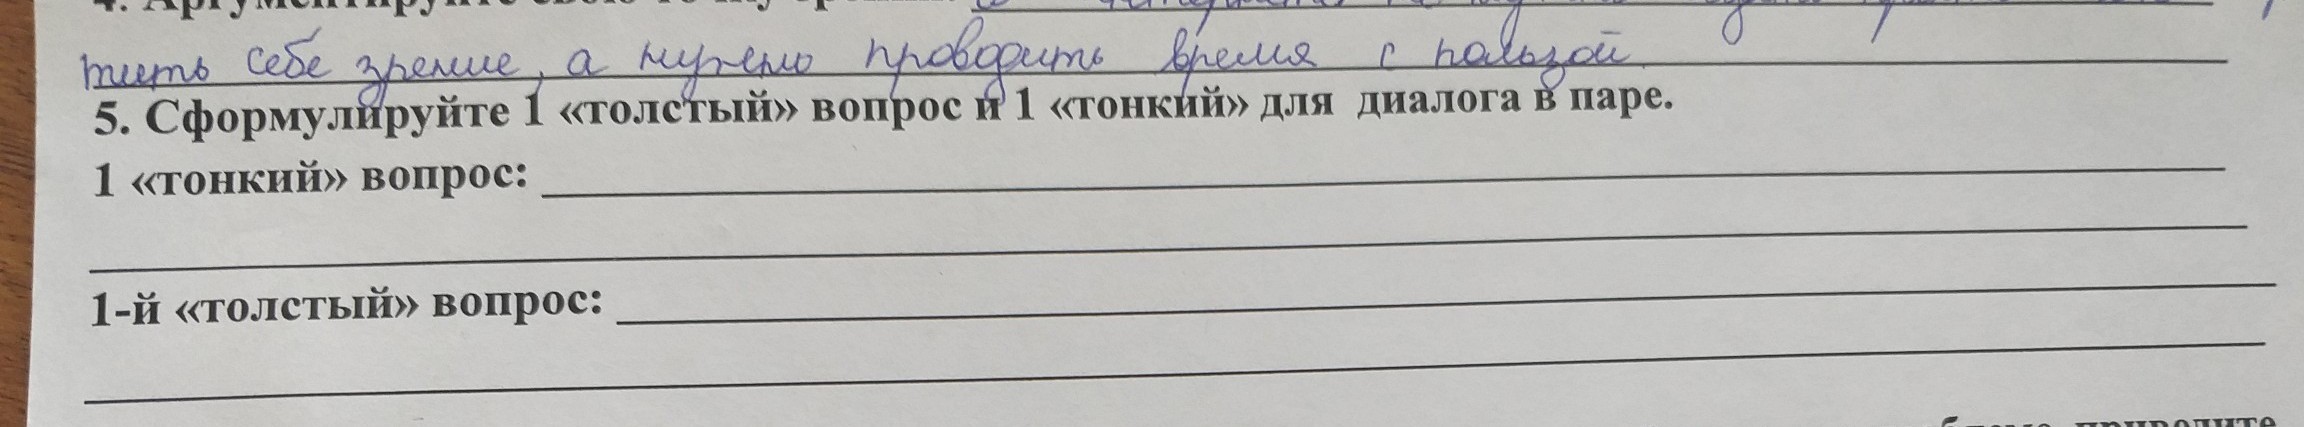 4. Аргументируйте свою точку зрения.
тить себе зрение, а нужно проводить время с пользой
5. Сформулируйте 1 «толстый» вопрос и 1 «тонкий» для диалога в паре.
1 «тонкий» вопрос:
1-й «толстый» вопрос:
приводите